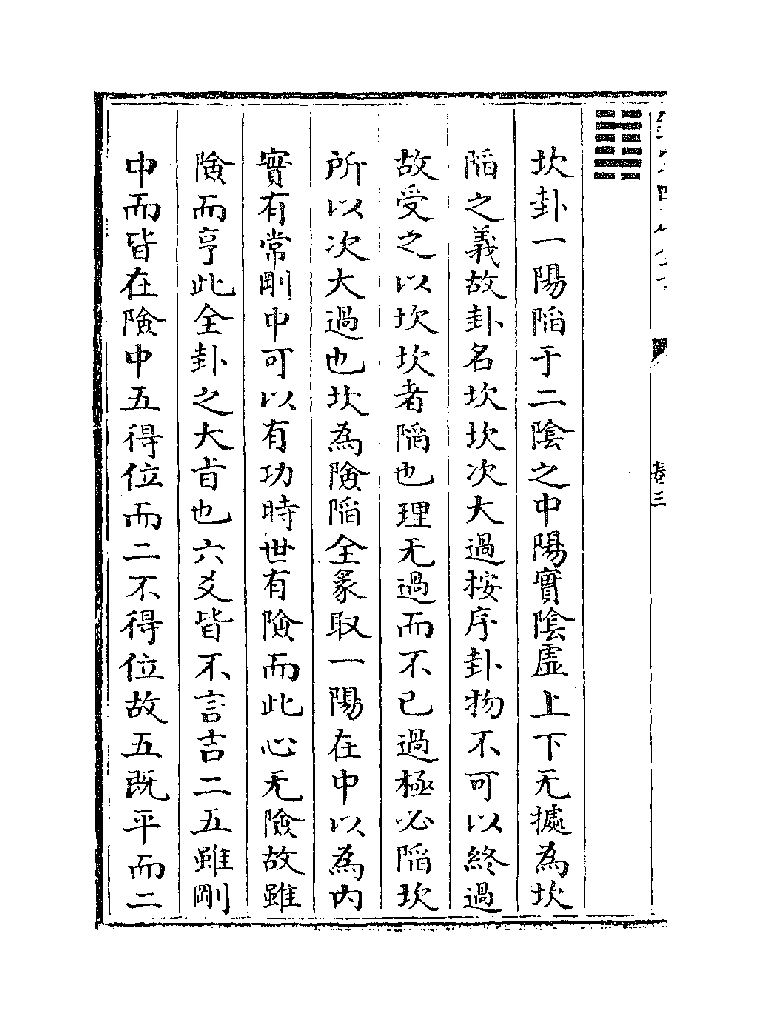 卷三
坎卦一陽陷于二陰之中陽實陰虛上下无據為坎
陷之義故卦名坎坎次大過按序卦物不可以終過
故受之以坎坎者陷也理无過而不已過極必陷坎
所以次大過也坎為險陷全彖取一陽在中以為内
實有常剛中可以有功時世有險而此心无險故雖
險而亨此全卦之大旨也六爻皆不言吉二五雖剛
中而皆在險中五得位而二不得位故五既平而二